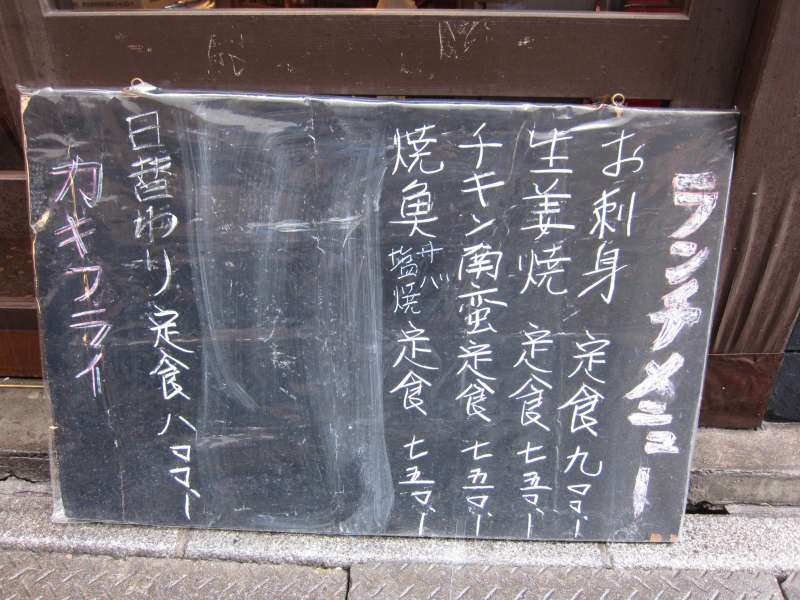 ランチメニュー
お刺身定食 九〇〇、
生姜焼定食 七五〇、
チキン南蛮定食 七五〇、
焼魚 サバ塩焼 定食 七五〇、
日替わり定食 八〇〇、
カキフライ